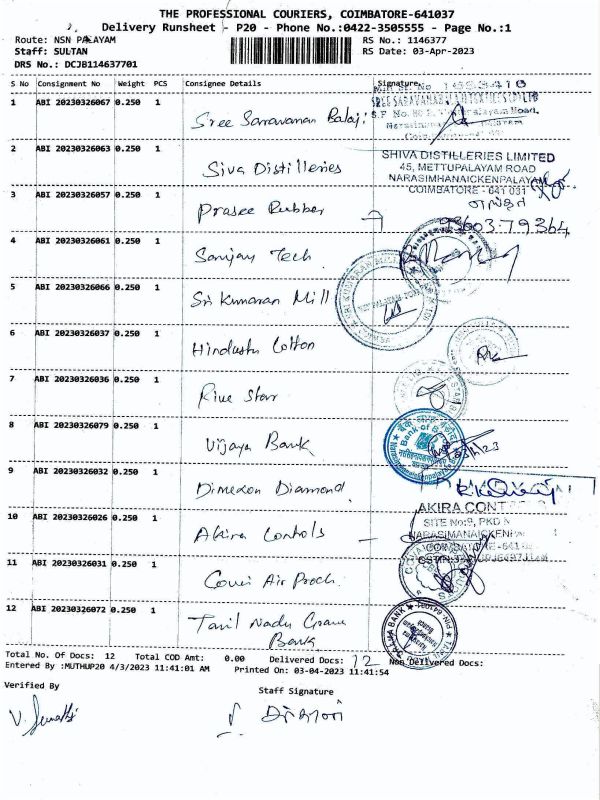 THE PROFESSIONAL COURIERS, COIMBATORE-641037
Delivery Runsheet - P20 - Phone No.:0422-3505555 - Page No.:1
Route: NSN PALAYAM
RS No.: 1146377
Staff: SULTAN
RS Date: 03-Apr-2023
DRS No.: DCJB114637701
S No Consignment No Weight PCS Consignee Details Signature
1 ABI 20230326067 0.250 1 Sree Saravanan Balaji
2 ABI 20230326063 0.250 1 Siva Distilleries
SHIVA DISTILLERIES LIMITED
45, METTUPALAYAM ROAD
NARASIMHANAICKENPALAYAM
COIMBATORE - 641 031
3 ABI 20230326057 0.250 1 Prasee Rubber
93603 79364
4 ABI 20230326061 0.250 1 Sanjay Tech
5 ABI 20230326066 0.250 1 Sri Kumaran Mill
6 ABI 20230326037 0.250 1 Hindustn Cotton
7 ABI 20230326036 0.250 1 Five Star
8 ABI 20230326079 0.250 1 Vijaya Bank
Bank of Baroda
9 ABI 20230326032 0.250 1 Dimexon Diamond
10 ABI 20230326026 0.250 1 Akira Contols
AKIRA CONT
SITE No:9, PKD
NARASIMANAICKENPA
COIMBATORE-641
11 ABI 20230326031 0.250 1 Air Proch
12 ABI 20230326072 0.250 1 Tamil Nadu Grama
Bank
Total No. Of Docs: 12 Total COD Amt: 0.00 Delivered Docs: 12 Non Delivered Docs:
Entered By :MUTHUP20 4/3/2023 11:41:01 AM Printed On: 03-04-2023 11:41:54
Verified By
Staff Signature